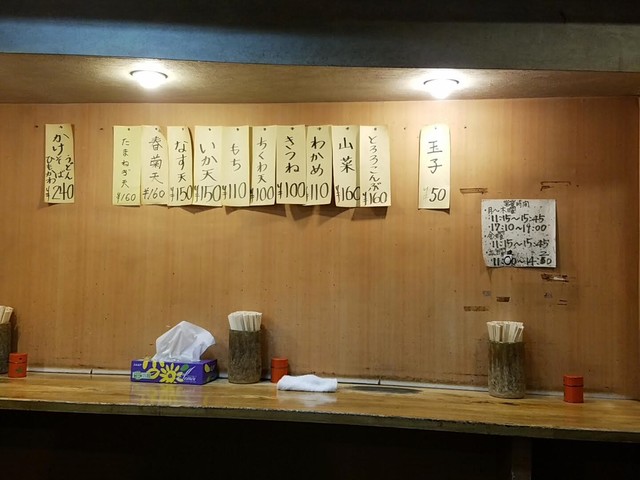 かけ うどん そば ひもかわ ¥240
たまねぎ天 ¥160
春菊天 ¥160
なす天 ¥150
いか天 ¥150
もち ¥110
ちくわ天 ¥100
きつね ¥100
わかめ ¥110
山菜 ¥160
とろろこんぶ ¥160
玉子 ¥50
営業時間
月〜木曜
11:15〜15:45
17:10〜19:00
金曜
11:15〜15:45